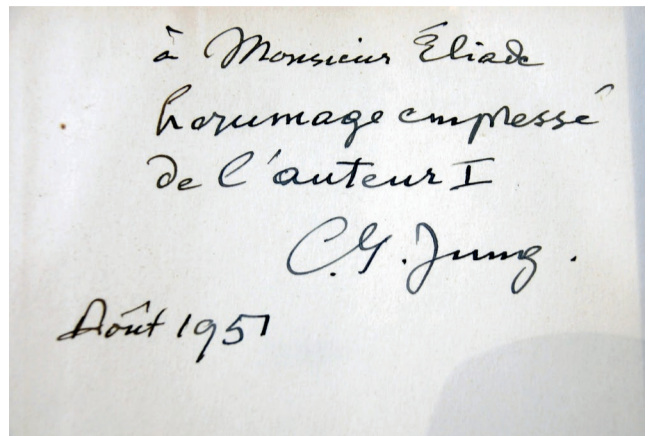 à Monsieur Éliade
hommage empressé
de l'auteur I
C.G. Jung.
Août 1951